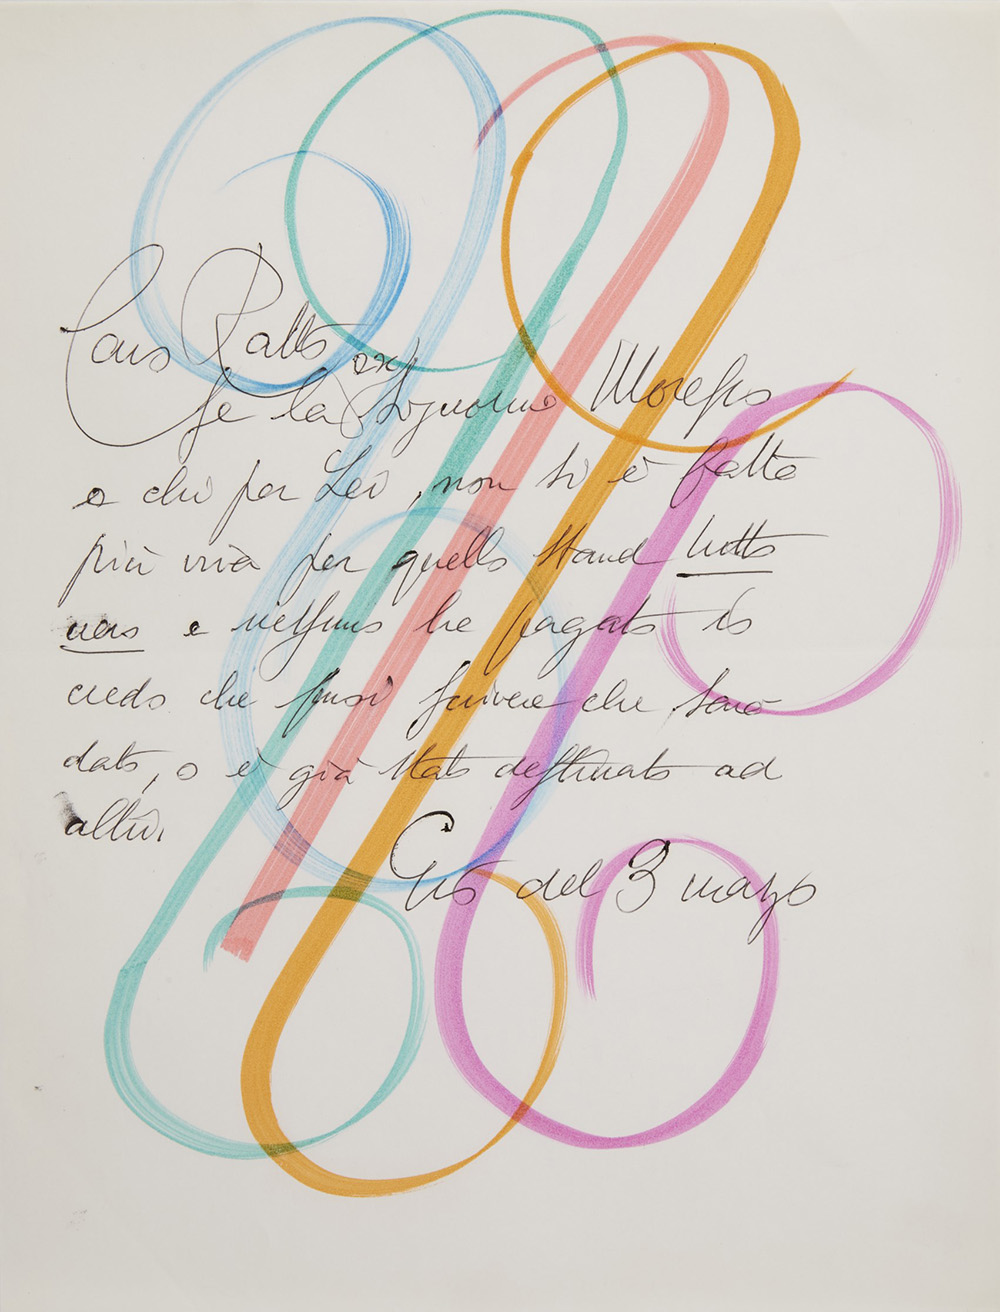 Caro Ratto
se la Signorina Moreps
o chi per Lei, non si è fatto
più viva per quello stand tutto
vero e nessuno he pagato io
credo che puoi scrivere che sarà
dato, o è già stato destinato ad
altri.
Ciao del 3 marzo